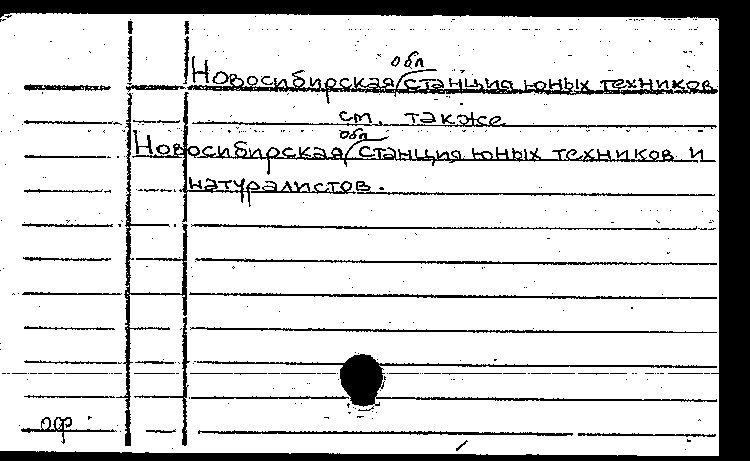 обл
Новосибирская станция юных техников
см. также
обл
Новосибирская станция юных техников и
натуралистов.